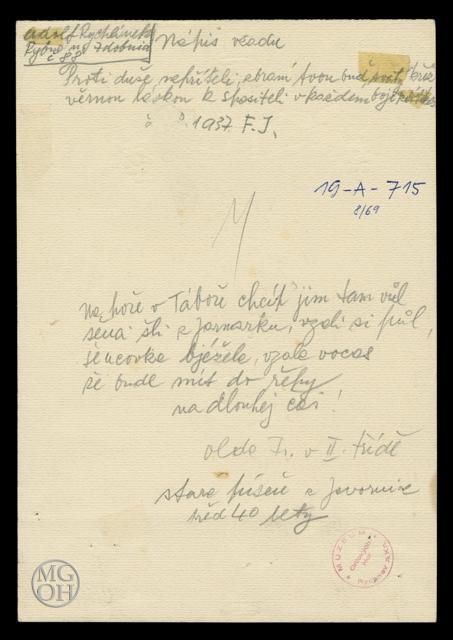 Adolf Rychlánek
Rybná na Zdobnici
č 88
Nápis vzadu
Proti duše nepříteli zbraní tvou buď svatý kříž
věrnou láskou k spasiteli v každém boji
1937 F.J.
19-A-715
8/69
Na hoře v Táboře chcíp jim tam vůl
sená šli z jarmarku, vzali si půl,
ševcovka bježela, vzala vocas
že bude mít do řehy
na dlouhej čas!
olda Jr. v II. třídě
stará píseň z Javornice
před 40 lety
MUZEUM
MG
OH